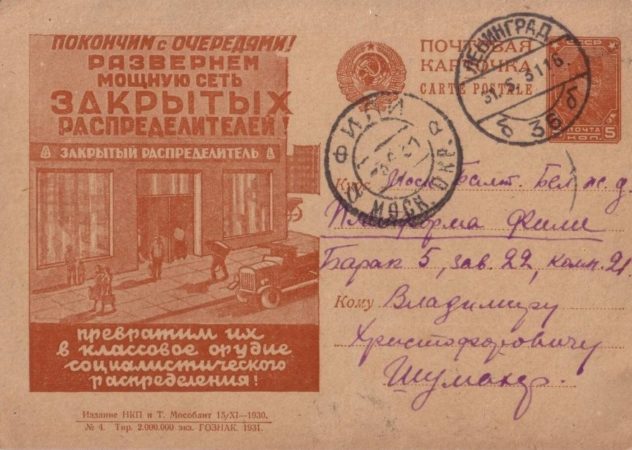 ПОКОНЧИМ с ОЧЕРЕДЯМИ!
РАЗВЕРНЕМ
МОЩНУЮ СЕТЬ
ЗАКРЫТЫХ
РАСПРЕДЕЛИТЕЛЕЙ!
ЗАКРЫТЫЙ РАСПРЕДЕЛИТЕЛЬ
превратим их
в классовое орудие
социалистического
распределения!
Издание НКП и Т. Мособлит 15/XI—1930.
№ 4. Тир. 2.000.000 экз. ГОЗНАК. 1931.
ПОЧТОВАЯ
КАРТОЧКА
CARTE POSTALE
ЛЕНИНГРАД
31.5.31 16.
36
ФИЛИ
МОСК. ОКР.
ПОЧТА
5 КОП.
Моск Балт. Бел ж. д.
Платформа Фили
Барак 5, зав. 22, комн. 21
Кому Владимиру
Христофоровичу
Шумандр.